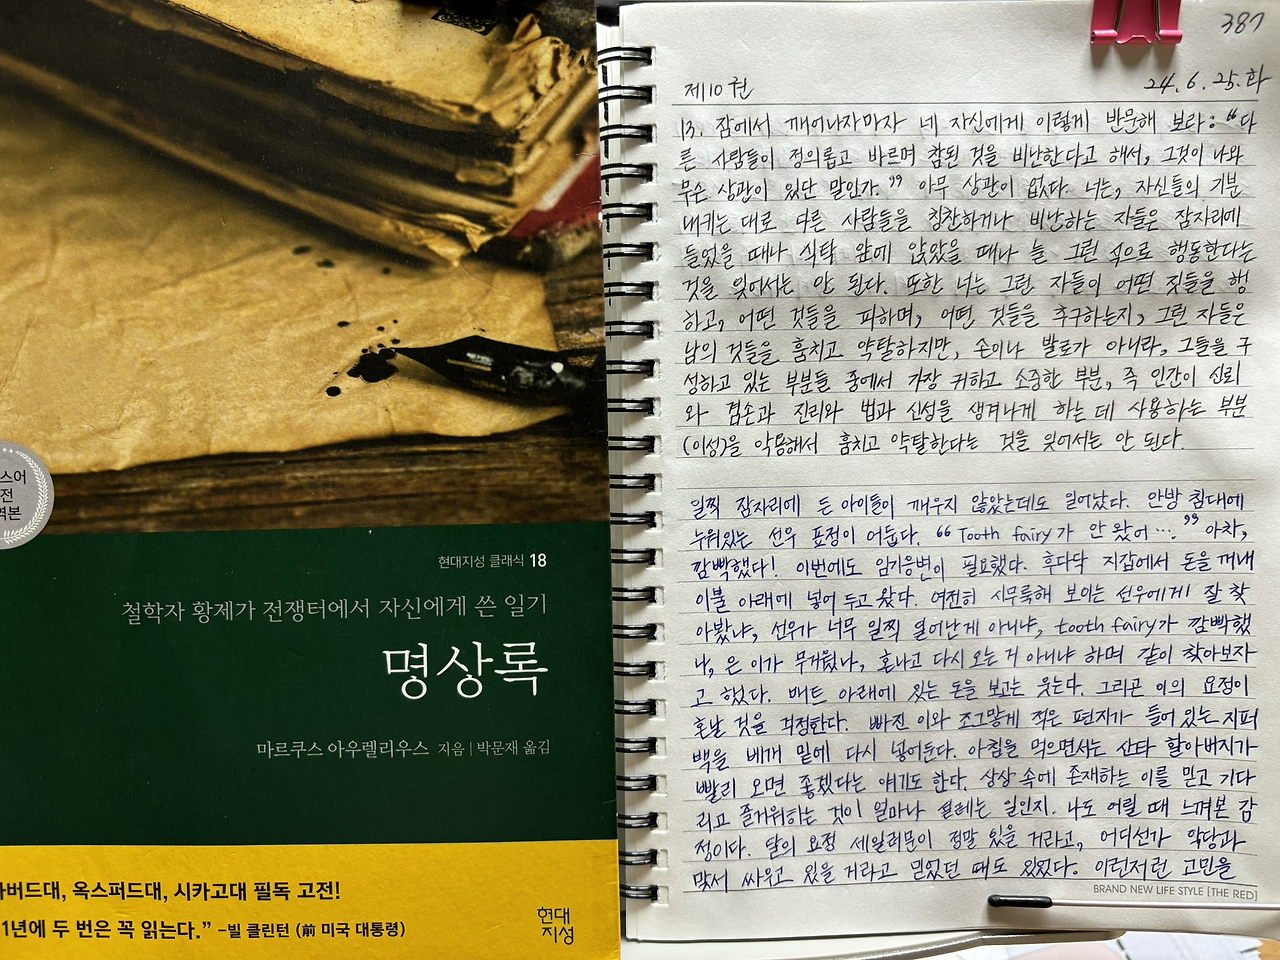 스어
전
역본
현대지성 클래식 18
철학자 황제가 전쟁터에서 자신에게 쓴 일기
명상록
마르쿠스 아우렐리우스 지음 | 박문재 옮김
버드대, 옥스퍼드대, 시카고대 필독 고전!
1년에 두 번은 꼭 읽는다.” -빌 클린턴 (前 미국 대통령)
현대
지성
387
제10권 24. 6. 25. 화
13. 잠에서 깨어나자마자 네 자신에게 이렇게 반문해 보라: “다
른 사람들이 정의롭고 바르며 참된 것을 비난한다고 해서, 그것이 나와
무슨 상관이 있단 말인가.” 아무 상관이 없다. 너는, 자신들의 기분
내키는 대로 다른 사람들을 칭찬하거나 비난하는 자들은 잠자리에
들었을 때나 식탁 앞에 앉았을 때나 늘 그런 식으로 행동한다는
것을 잊어서는 안 된다. 또한 너는 그런 자들이 어떤 짓들을 행
하고, 어떤 것들을 피하며, 어떤 것들을 추구하는지, 그런 자들은
남의 것들을 훔치고 약탈하지만, 손이나 발로가 아니라, 그들을 구
성하고 있는 부분들 중에서 가장 귀하고 소중한 부분, 즉 인간이 신뢰
와 겸손과 진리와 법과 신성을 생겨나게 하는 데 사용하는 부분
(이성)을 악용해서 훔치고 약탈한다는 것을 잊어서는 안 된다.
일찍 잠자리에 든 아이들이 깨우지 않았는데도 일어났다. 안방 침대에
누워있는 선우 표정이 어둡다. “Tooth fairy가 안 왔어…” 아차,
깜빡했다! 이번에도 임기응변이 필요했다. 후다닥 지갑에서 돈을 꺼내
이불 아래에 넣어 두고 왔다. 여전히 시무룩해 보이는 선우에게 잘 찾
아봤냐, 선우가 너무 일찍 일어난게 아니냐, tooth fairy가 깜빡했
나, 은 이가 무거웠나, 혼나고 다시 오는 거 아니냐 하며 같이 찾아보자
고 했다. 매트 아래에 있는 돈을 보고는 웃는다. 그리곤 이의 요정이
혼날 것을 걱정한다. 빠진 이와 조그맣게 적은 편지가 들어있는 지퍼
백을 베개 밑에 다시 넣어둔다. 아침을 먹으면서는 산타 할아버지가
빨리 오면 좋겠다는 얘기도 한다. 상상 속에 존재하는 이를 믿고 기다
리고 즐거워하는 것이 얼마나 설레는 일인지. 나도 어릴 때 느껴본 감
정이다. 달의 요정 세일러문이 정말 있을 거라고, 어디선가 악당과
맞서 싸우고 있을 거라고 믿었던 때도 있었다. 이런저런 고민을
BRAND NEW LIFE STYLE [THE RED]